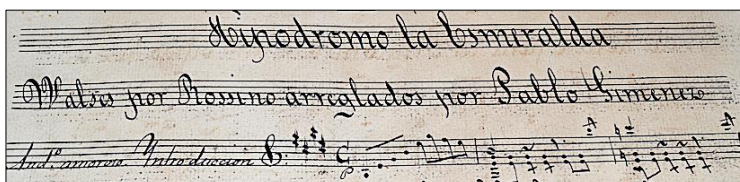 Hipodromo la Esmeralda
Walses por Rossino arreglados por Pablo Gimenez
And.º amoroso Introduccion